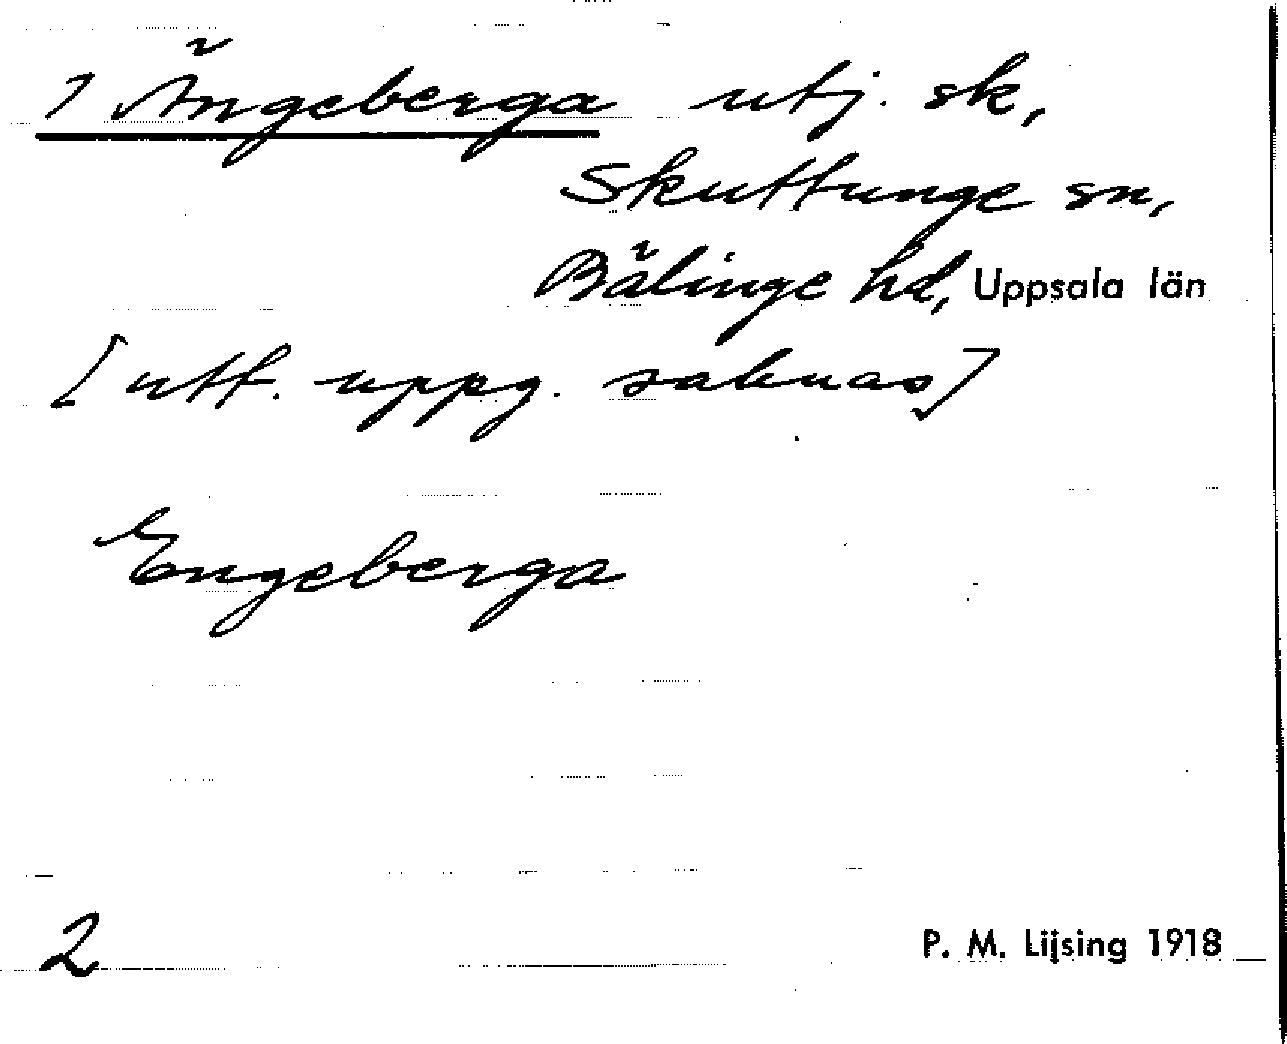 1 Ängeberga utj. sk,
Skuttunge sn,
Bälinge hd, Uppsala län
[utt. uppg. saknas]
Engeberga
2
P. M. Lijsing 1918